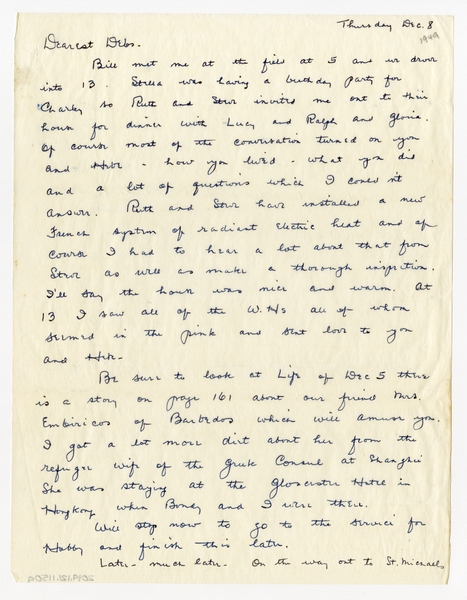 Thursday Dec. 8
1949
Dearest Debs.
Bill met me at the field at 5 and we drove
into 13. Stella was having a birthday party for
Charley so Ruth and Stror invited me out to their
house for dinner with Lucy and Ralph and Gloria.
Of course most of the conversation turned on you
and Herb - how you lived - what you did
and a lot of questions which I couldn't
answer. Ruth and Stror have installed a new
French system of radiant electric heat and of
course I had to hear a lot about that from
Stror as well as make a thorough inspection.
I'll say the house was nice and warm. At
13 I saw all of the W.Hs all of whom
seemed in the pink and sent love to you
and Herb.
Be sure to look at Life of Dec 5 there
is a story on page 161 about our friend Mrs.
Embiricos of Barbedos which will amuse you.
I got a lot more dirt about her from the
refugee wife of the Greek Consul at Shanghai
She was staying at the Gloucester Hotel in
Hongkong when Bondy and I were there.
Will stop now to go to the service for
Hobby and finish this later.
Later - much later - On the way out to St. Michaels
2019.121.1150a